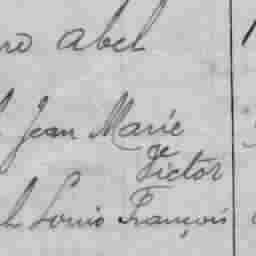 Abel
Jean Marie
Victor
Louis François